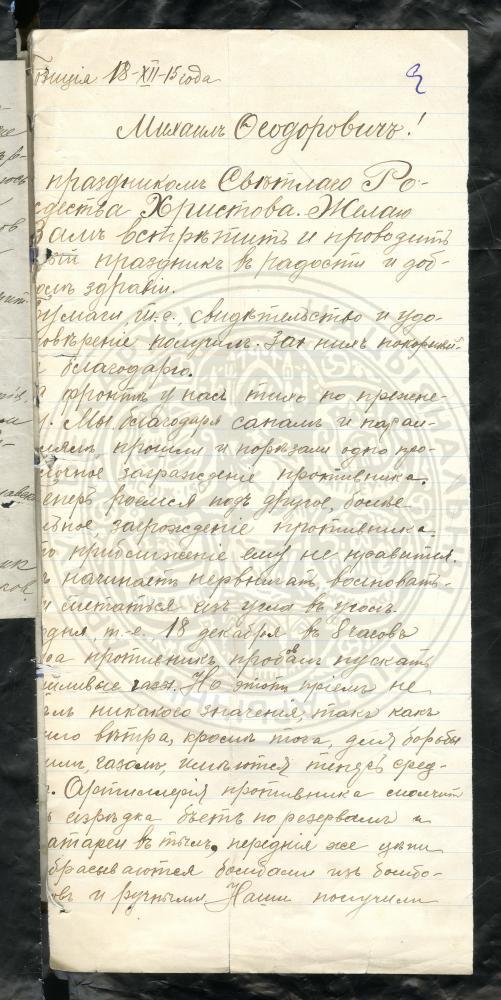 зиція 18-XII-15 года
Михаилъ Ѳеодоровичъ!
праздникомъ Свѣтлаго Ро-
дества Христова. Желаю
Вамъ встрѣтить и проводить
праздникъ въ радости и доб-
омъ здравіи.
Бумаги, т.е. свидѣтельство и удо-
товѣреніе получилъ. За нихъ покорнѣй-
благодарю.
фронтѣ у насъ тихо по прежне-
у. Мы благодаря сапамъ и парал-
лелямъ прошли и порѣзали одно про-
лочное загражденіе противника.
еперь роемся подъ другое, болѣе
льное загрожденіе противника.
о приближеніе ему не нравится.
ъ начинаетъ нервничать, волновать-
и метаться изъ угла въ уголъ.
одня, т.-е. 18 декабря въ 8 часовъ
ра противникъ пробовалъ пускать
шливые газы. Но этотъ пріемъ не
лъ никакого значенія, такъ какъ
вѣтра, кромѣ того, для борьбы
ими, газами, имѣются теперь сред-
. Артиллерія противника молчитъ
изрѣдка бьетъ по резервамъ и
атареи въ тылъ, передніе же цѣпи
брасываются бомбами изъ бомбо-
овъ и ручными. Наши получили